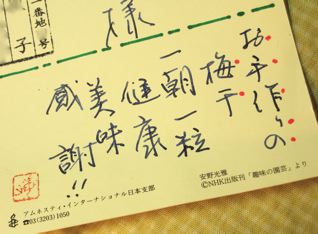 一番地 号
子
様
お手作りの
梅干
一朝一粒
健康
美味
感謝!!
安野光雅
©NHK出版刊「趣味の園芸」より
アムネスティ・インターナショナル日本支部
☎03(3203)1050